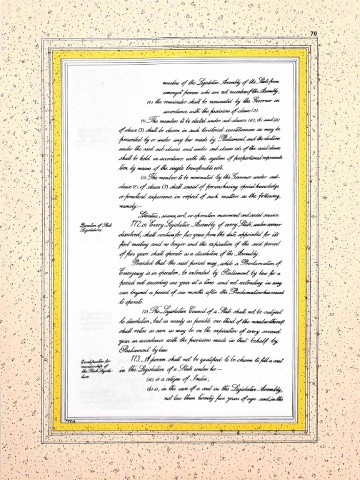 70
members of the Legislative Assembly of the State from
amongst persons who are not members of the Assembly;
(e) the remainder shall be nominated by the Governor in
accordance with the provisions of clause (5).
(4) The members to be elected under sub-clauses (a), (b) and (c)
of clause (3) shall be chosen in such territorial constituencies as may be
prescribed by or under any law made by Parliament, and the elections
under the said sub-clauses and under sub-clause (d) of the said clause
shall be held in accordance with the system of proportional representa-
tion by means of the single transferable vote.
(5) The members to be nominated by the Governor under sub-
clause (e) of clause (3) shall consist of persons having special knowledge
or practical experience in respect of such matters as the following,
namely:—
Literature, science, art, co-operative movement and social service.
Duration of State
Legislatures.
172. (1) Every Legislative Assembly of every State, unless sooner
dissolved, shall continue for five years from the date appointed for its
first meeting and no longer and the expiration of the said period
of five years shall operate as a dissolution of the Assembly:
Provided that the said period may, while a Proclamation of
Emergency is in operation, be extended by Parliament by law for a
period not exceeding one year at a time and not extending in any
case beyond a period of six months after the Proclamation has ceased
to operate.
(2) The Legislative Council of a State shall not be subject
to dissolution, but as nearly as possible one-third of the members thereof
shall retire as soon as may be on the expiration of every second
year in accordance with the provisions made in that behalf by
Parliament by law.
Qualification for
membership of
the State Legisla-
ture.
173. A person shall not be qualified to be chosen to fill a seat
in the Legislature of a State unless he—
(a) is a citizen of India;
(b) is, in the case of a seat in the Legislative Assembly,
not less than twenty-five years of age and, in the